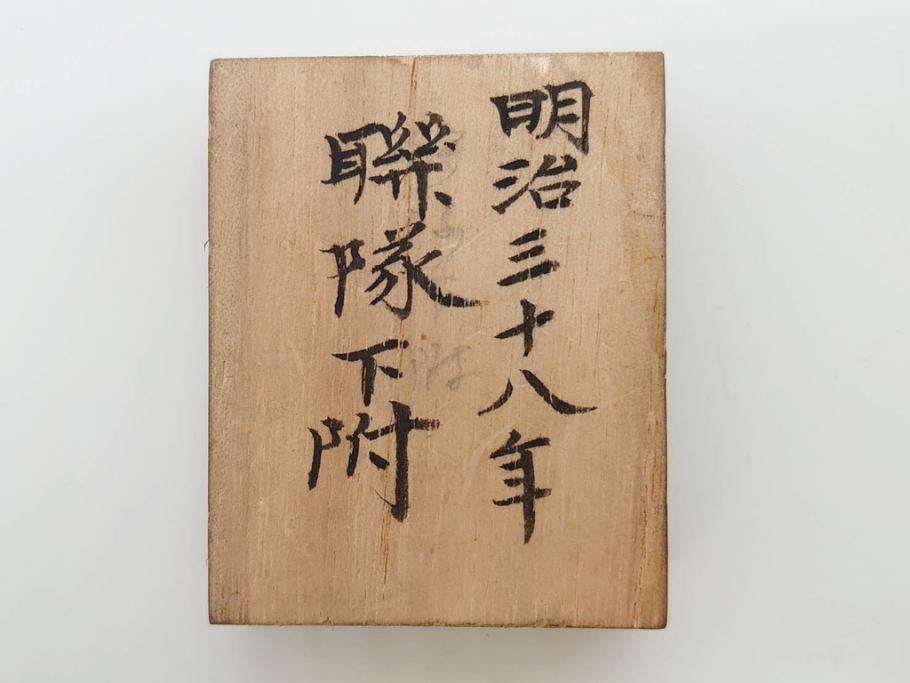 明治三十八年
聯隊下附